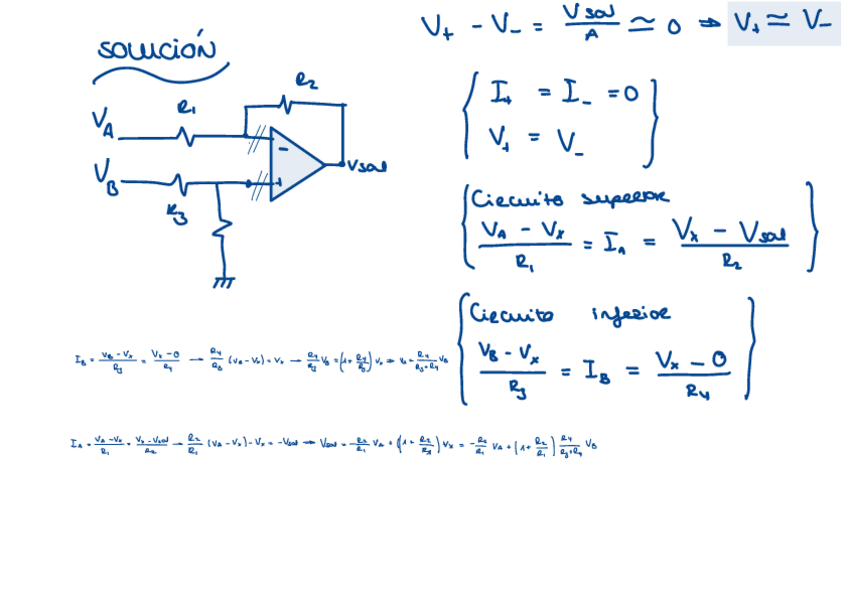 V₊ - V₋ = Vsal/A ≃ 0 → V₊ ≃ V₋
SOLUCIÓN
R₂
R₁
V_A
V_B
-
+
Vsal
R₃
I₊ = I₋ = 0
V₊ = V₋
Circuito superior
(V_A - Vₓ)/R₁ = I_A = (Vₓ - Vsal)/R₂
Circuito inferior
(V_B - Vₓ)/R₃ = I_B = (Vₓ - 0)/R₄
I_B = (V_B - Vₓ)/R₃ = (Vₓ - 0)/R₄ → R₄/R₃ (V_B - Vₓ) = Vₓ → R₄/R₃ V_B = (1 + R₄/R₃) Vₓ → Vₓ = R₄/(R₃+R₄) V_B
I_A = (V_A - Vₓ)/R₁ = (Vₓ - Vsal)/R₂ → R₂/R₁ (V_A - Vₓ) - Vₓ = -Vsal → Vsal = -R₂/R₁ V_A + (1 + R₂/R₁) Vₓ = -R₂/R₁ V_A + (1 + R₂/R₁) R₄/(R₃+R₄) V_B